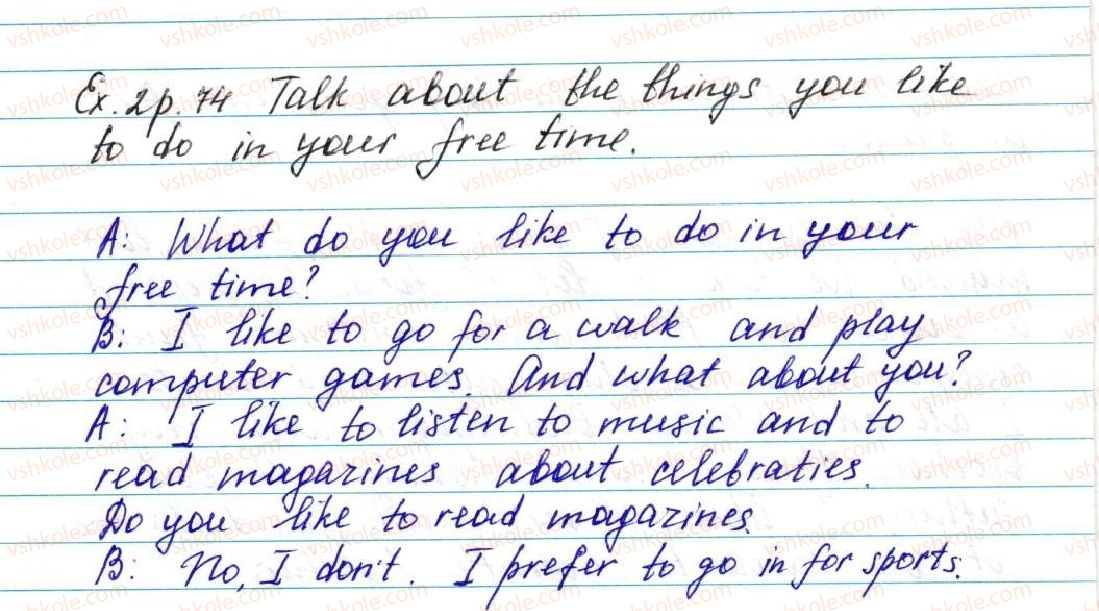 Ex. 2p. 74 Talk about the things you like
to do in your free time.
A: What do you like to do in your
free time?
B: I like to go for a walk and play
computer games. And what about you?
A: I like to listen to music and to
read magazines about celebraties.
Do you like to read magazines.
B: No, I don't. I prefer to go in for sports.